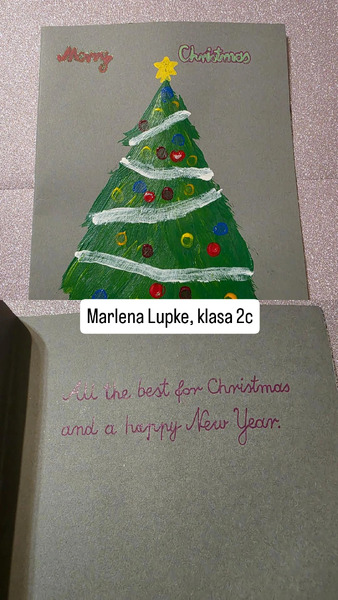 Merry Christmas
Marlena Lupke, klasa 2c
All the best for Christmas
and a happy New Year.